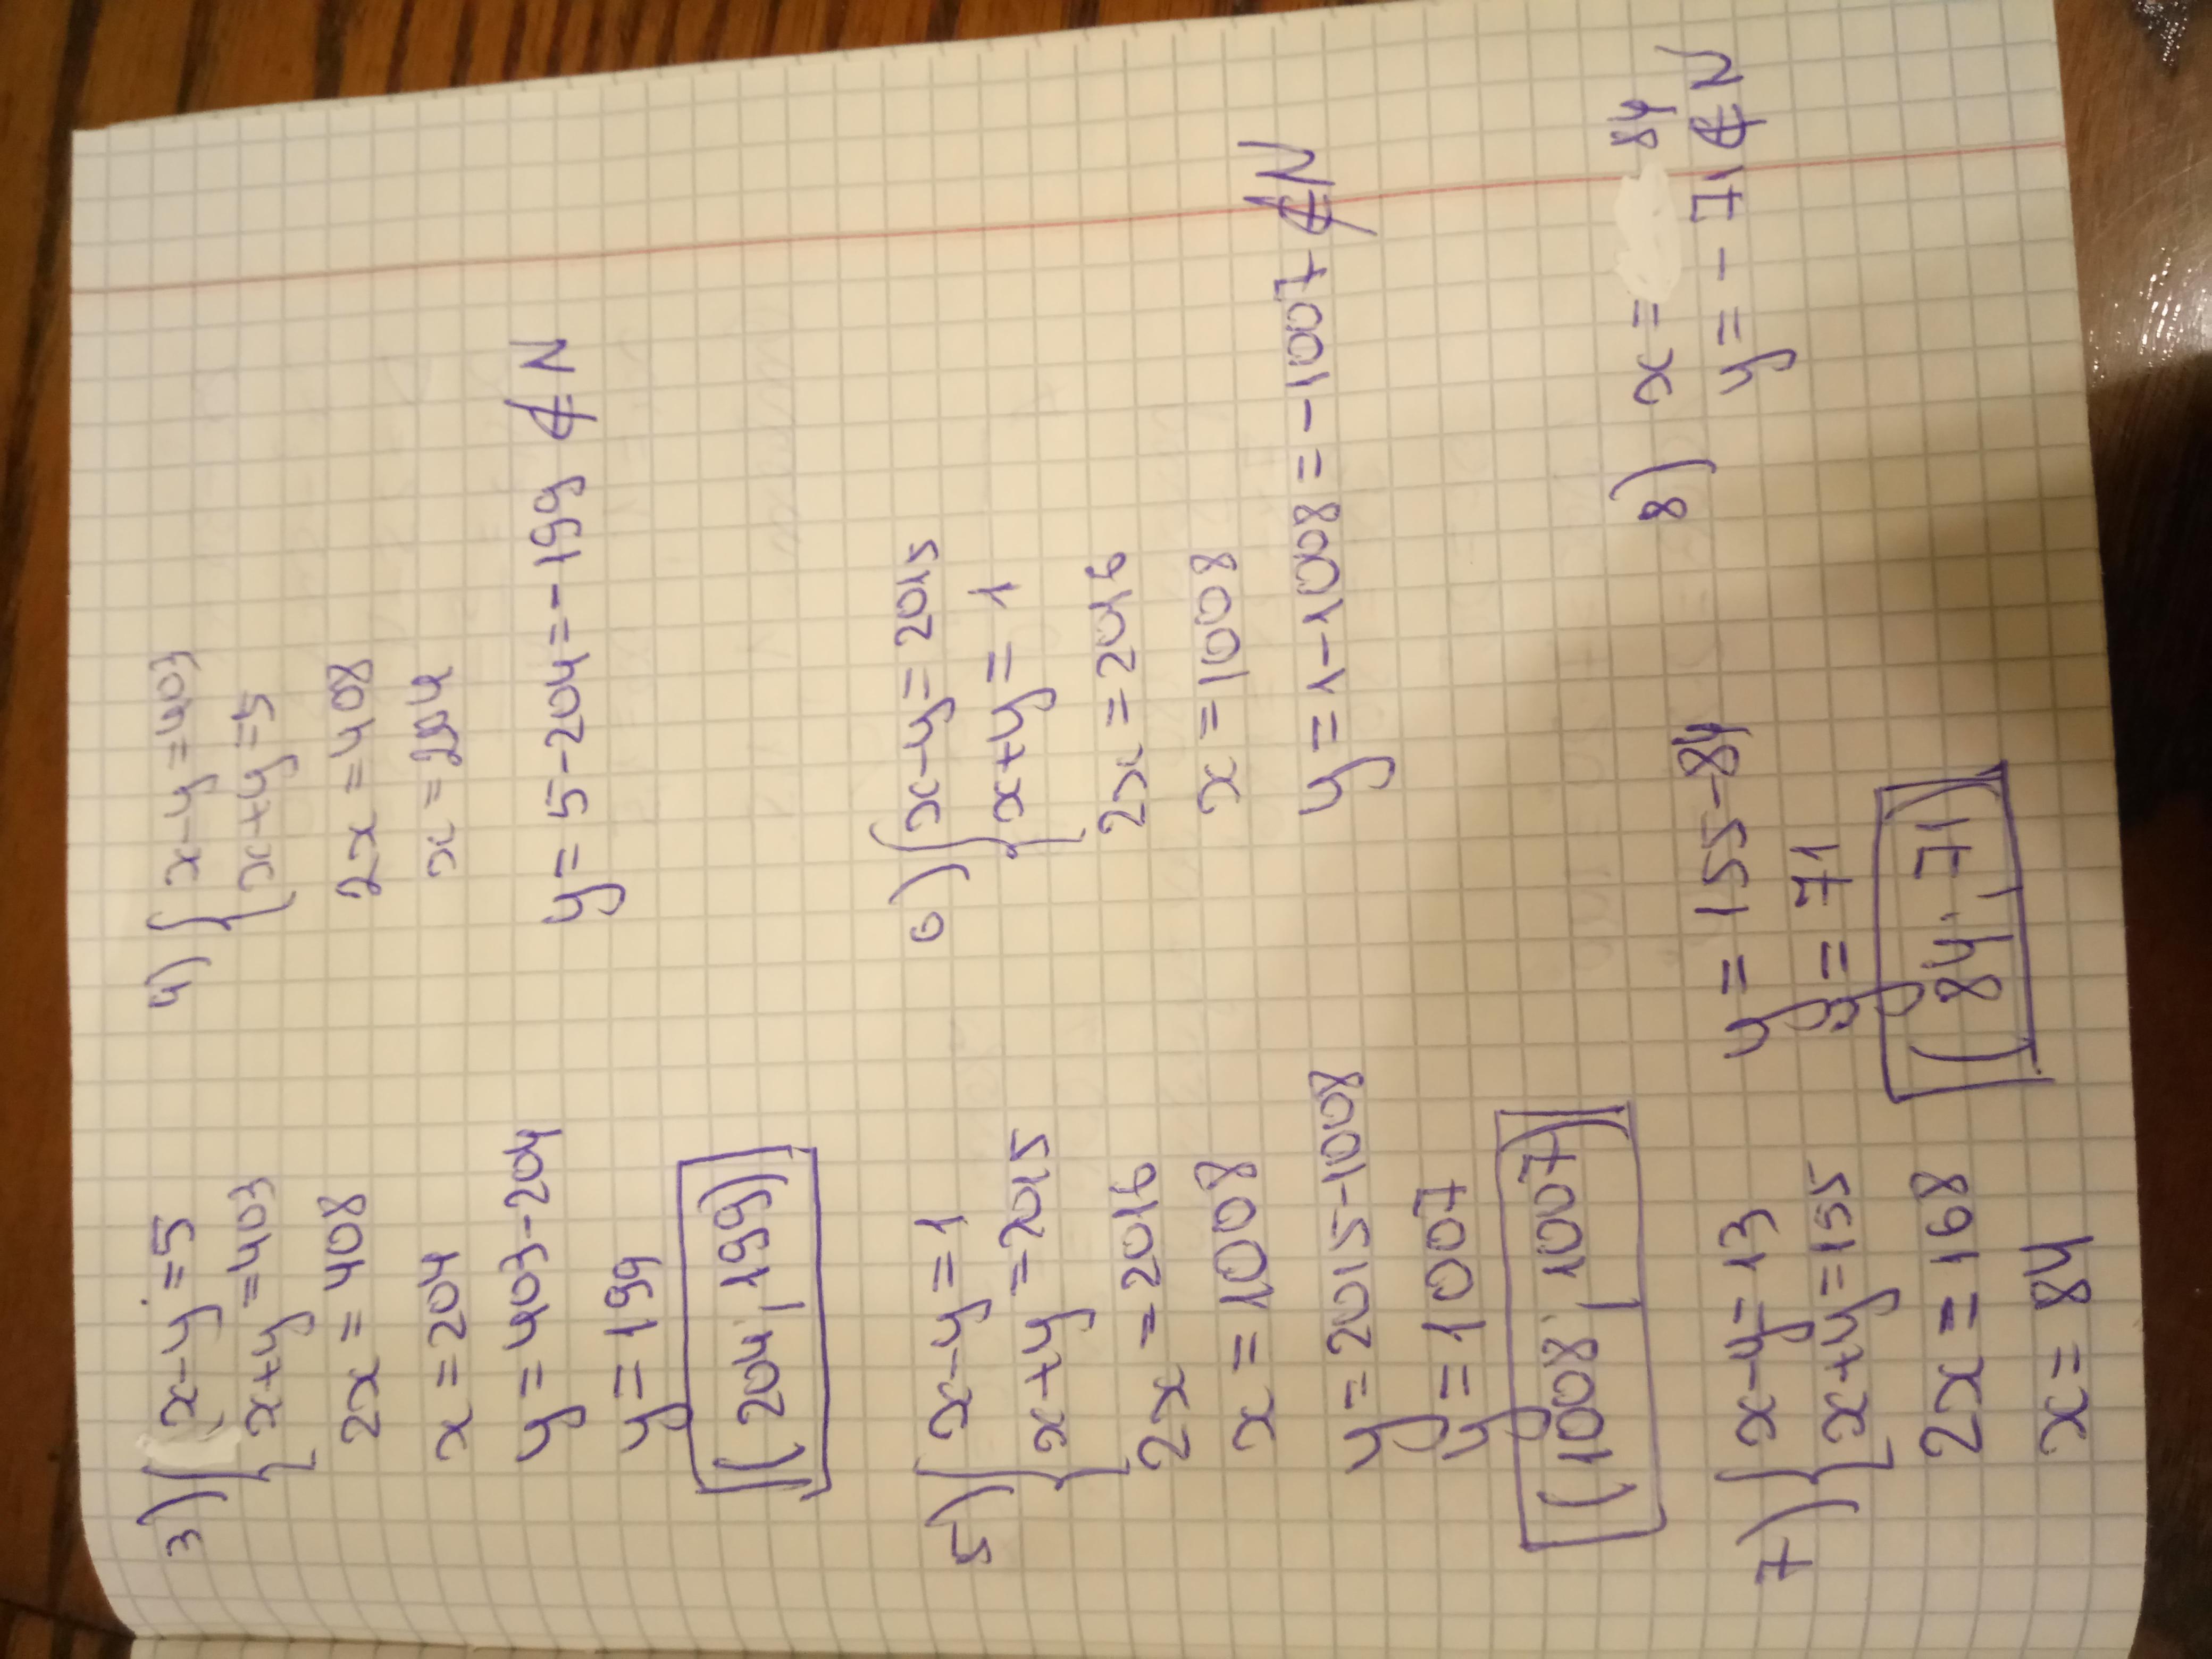 3) { x-y=5
x+y=403
2x=408
x=204
y=403-204
y=199
(204; 199)
4) { x-y=403
x+y=5
2x=408
x=204
y=5-204=-199 ∉ N
5) { x-y=1
x+y=2015
2x=2016
x=1008
y=2015-1008
y=1007
(1008; 1007)
6) { x-y=2015
x+y=1
2x=2016
x=1008
y=1-1008=-1007 ∉ N
7) { x-y=13
x+y=155
2x=168
x=84
y=155-84
y=71
(84; 71)
8) x= 84
y=-71 ∉ N